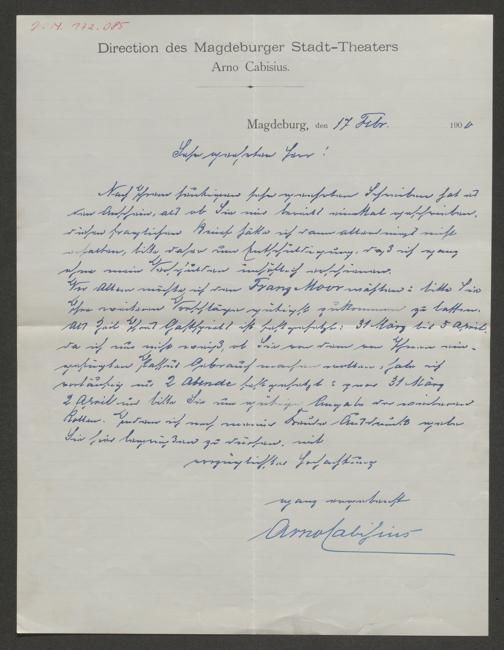 J. N. 172.085
Direction des Magdeburger Stadt-Theaters
Arno Cabisius.
Magdeburg, den 17 Febr. 190
Sehr geehrter Herr!
Nach Ihrem heutigen sehr geehrten Schreiben hat es
den Anschein, als ob Sie mir bereits einmal geschrieben,
diesen fraglichen Brief habe ich dann allerdings nicht
erhalten, bitte daher um Entschuldigung, daß ich ganz
ohne mein Verschulden unhöflich erschienen.
Vor Allem möchte ich den Franz Moor wählen: bitte Sie
Ihre weiteren Vorschläge gütigst zukommen zu lassen.
Als Zeit Ihres Gastspiels ist festgesetzt: 31 März bis 5 April.
da ich nun nicht weiß, ob Sie von dem von Ihnen ein-
gefügten Passus Gebrauch machen wollen, habe ich
vorläufig nur 2 Abende festgesetzt: zwar 31 März
2 April und bitte Sie um gütige Angabe der weiteren
Rollen. Indem ich noch meiner Freude Ausdruck gebe
Sie hier begrüßen zu dürfen, mit
vorzüglichster Hochachtung
ganz ergebenst
Arno Cabisius